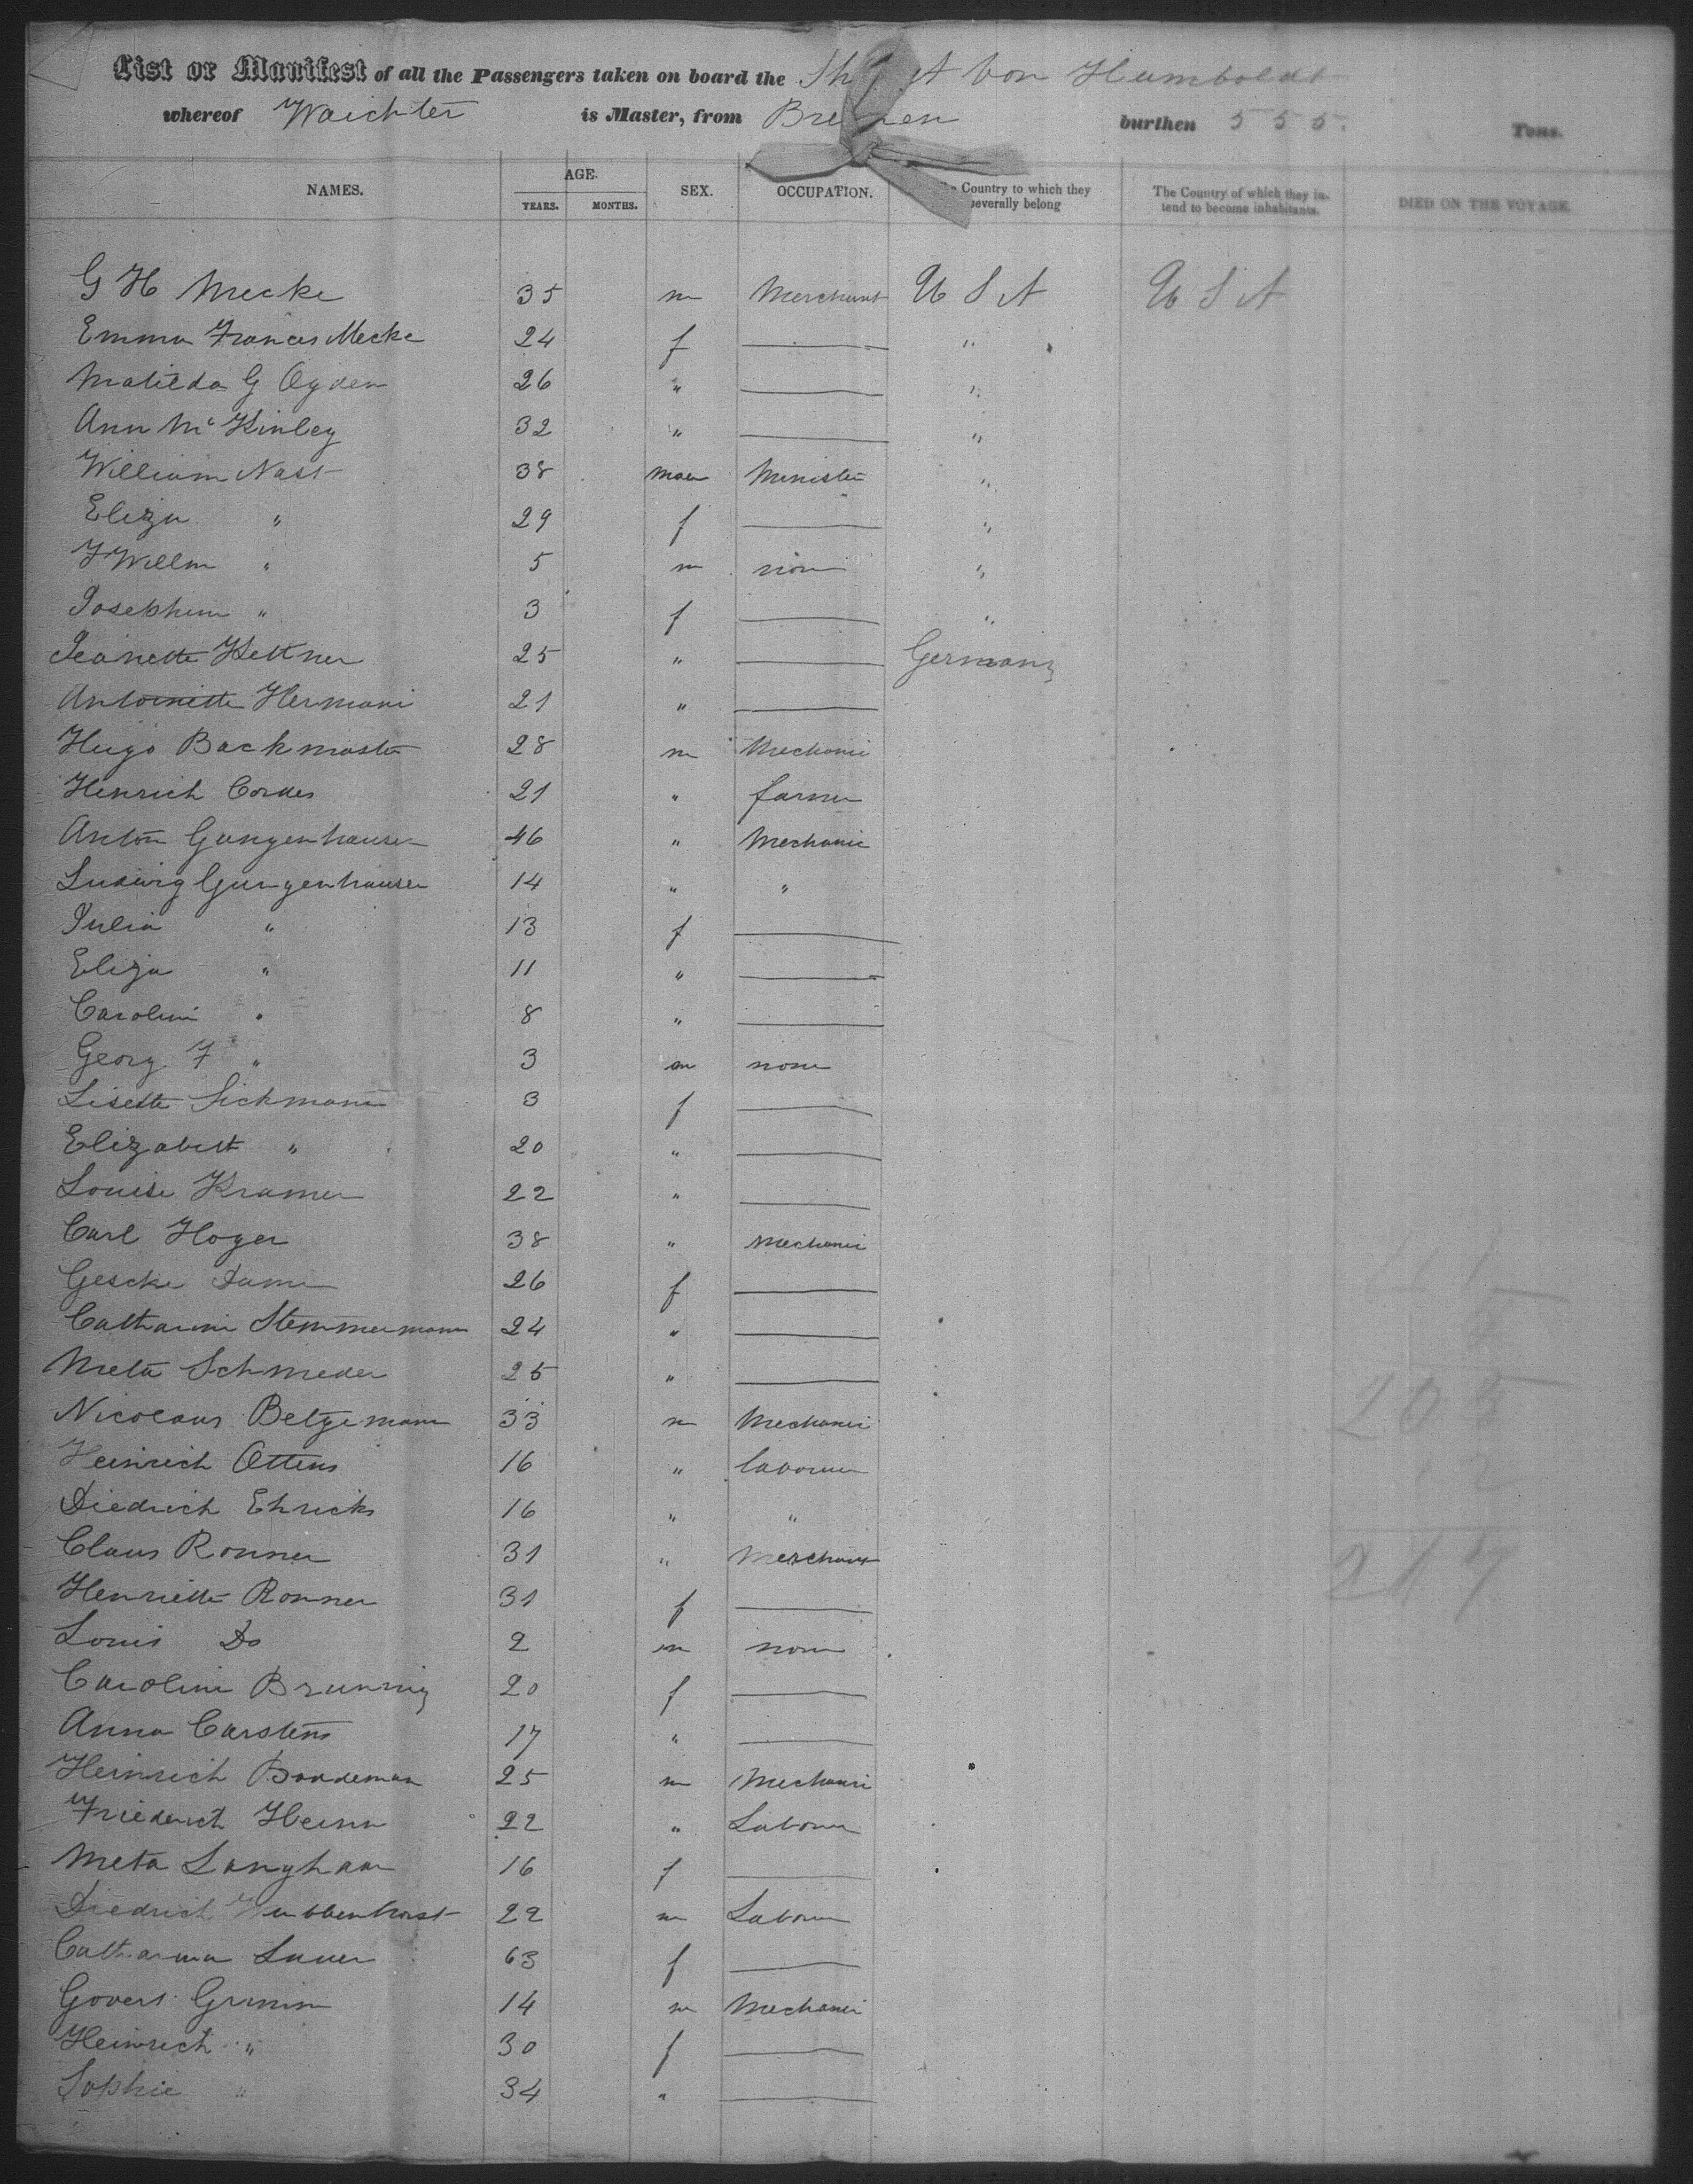 List or Manifest of all the Passengers taken on board the Ship A Von Humboldt
whereof Waichter is Master, from Bremen burthen 555. Tons.
NAMES. AGE. YEARS. MONTHS. SEX. OCCUPATION. Country to which they severally belong The Country of which they intend to become inhabitants. DIED ON THE VOYAGE.
G H Mecke 35 m Merchant U S A U S A
Emma Frances Mecke 24 f —— "
Matilda G Ogden 26 " —— "
Ann McKinley 32 " —— "
William Nast 38 Minister "
Eliza " 29 f —— "
Willm " 5 m non "
Josephine " 3 f —— "
Jeanette Kettner 25 " —— Germany
Antoinette Hermani 21 " ——
Hugo Backmaster 28 m Mechanic
Henrich Cordes 21 " farmer
Anton Gungenhauser 46 " Mechanic
Ludwig Gungenhauser 14 " "
Julia " 13 f ——
Eliza " 11 " ——
Carolin " 8 " ——
Georg F " 3 m none
Lisette Sickmann 3 f ——
Elizabeth " 20 " ——
Louise Kramer 22 " ——
Carl Hoyer 38 " Mechanic
Gesche 26 f ——
Catharine Stemmermann 24 " ——
Meta Schmeder 25 " ——
Nicolaus Betjemann 33 m Mechanic
Heinrich Ottens 16 " laborer
Diedrich Ehricks 16 " "
Claus Ronner 31 " Merchant
Henriette Ronner 31 f ——
Louis Do 2 m non
Caroline Brunnig 20 f ——
Anna Carstens 17 " ——
Heinrich Bondeman 25 m Mechanic
Friederich Heinn 22 " Laborer
Meta Langhaar 16 f ——
Diedrich Hubbenhorst 22 m Laborer
Catharina Lauer 63 f ——
Govert Grimm 14 m Mechanic
Heinrich " 30 f ——
Sophie " 34 " ——